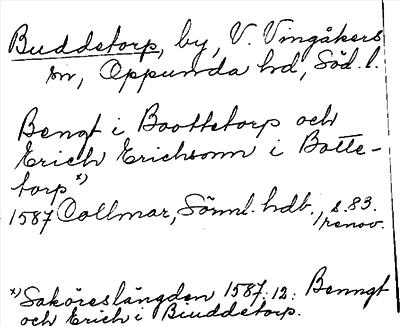 Buddetorp, by, V. Vingåkers
sn, Oppunda hd, Söd. l.
Bengt i Boottetorp och
Erich Erichsonn i Botte-
torp*)
1587 Collmar, Sörml. hdb., s. 83.
/renov.
*) Saköreslängden 1587:12: Benngt
och Erich i Biuddetorp.